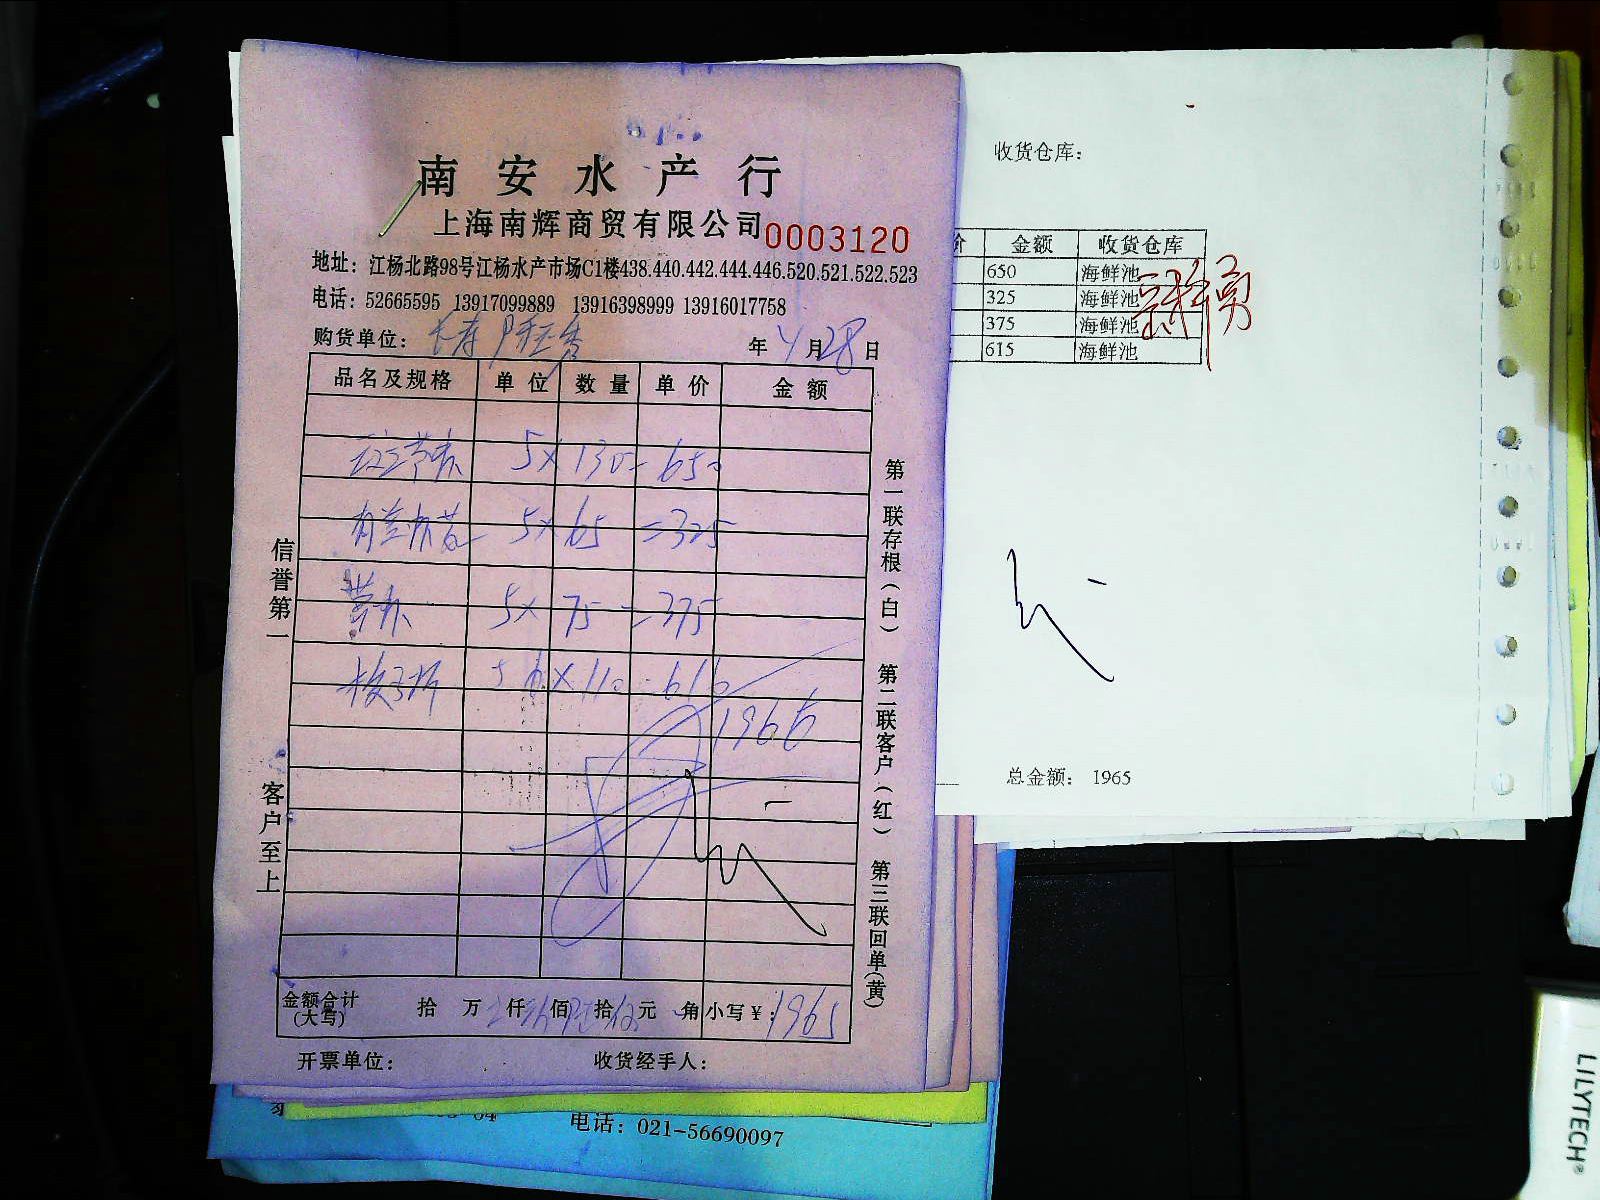 南安水产行
上海南辉商贸有限公司 0003120
地址：江杨北路98号江杨水产市场C1楼438.440.442.444.446.520.521.522.523
电话：52665595 13917099889 13916398999 13916017758
购货单位： 长寿 年 4 月 28 日
品名及规格 单位 数量 单价 金额
5×130=650
5×65=325
5×75=375
5.6×110=616
1966
金额合计(大写) 拾 万 仟 佰 拾 元 角 小写￥：1965
开票单位： 收货经手人：
信誉第一
客户至上
第一联存根(白) 第二联客户(红) 第三联回单(黄)
收货仓库：
价 金额 收货仓库
650 海鲜池
325 海鲜池
375 海鲜池
615 海鲜池
总金额： 1965
电话：021-56690097
LILYTECH®